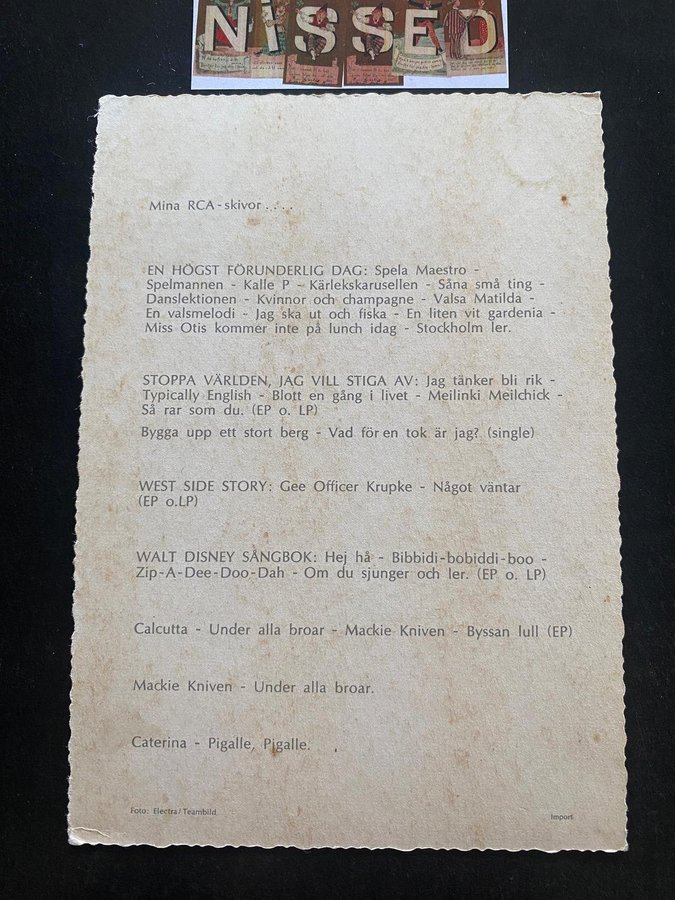 NISSED
Mina RCA-skivor . . . .
EN HÖGST FÖRUNDERLIG DAG: Spela Maestro -
Spelmannen - Kalle P - Kärlekskarusellen - Såna små ting -
Danslektionen - Kvinnor och champagne - Valsa Matilda -
En valsmelodi - Jag ska ut och fiska - En liten vit gardenia -
Miss Otis kommer inte på lunch idag - Stockholm ler.
STOPPA VÄRLDEN, JAG VILL STIGA AV: Jag tänker bli rik -
Typically English - Blott en gång i livet - Meilinki Meilchick -
Så rar som du. (EP o. LP)
Bygga upp ett stort berg - Vad för en tok är jag? (single)
WEST SIDE STORY: Gee Officer Krupke - Något väntar
(EP o.LP)
WALT DISNEY SÅNGBOK: Hej hå - Bibbidi-bobiddi-boo -
Zip-A-Dee-Doo-Dah - Om du sjunger och ler. (EP o. LP)
Calcutta - Under alla broar - Mackie Kniven - Byssan lull (EP)
Mackie Kniven - Under alla broar.
Caterina - Pigalle, Pigalle.
Foto: Electra/Teambild
Import